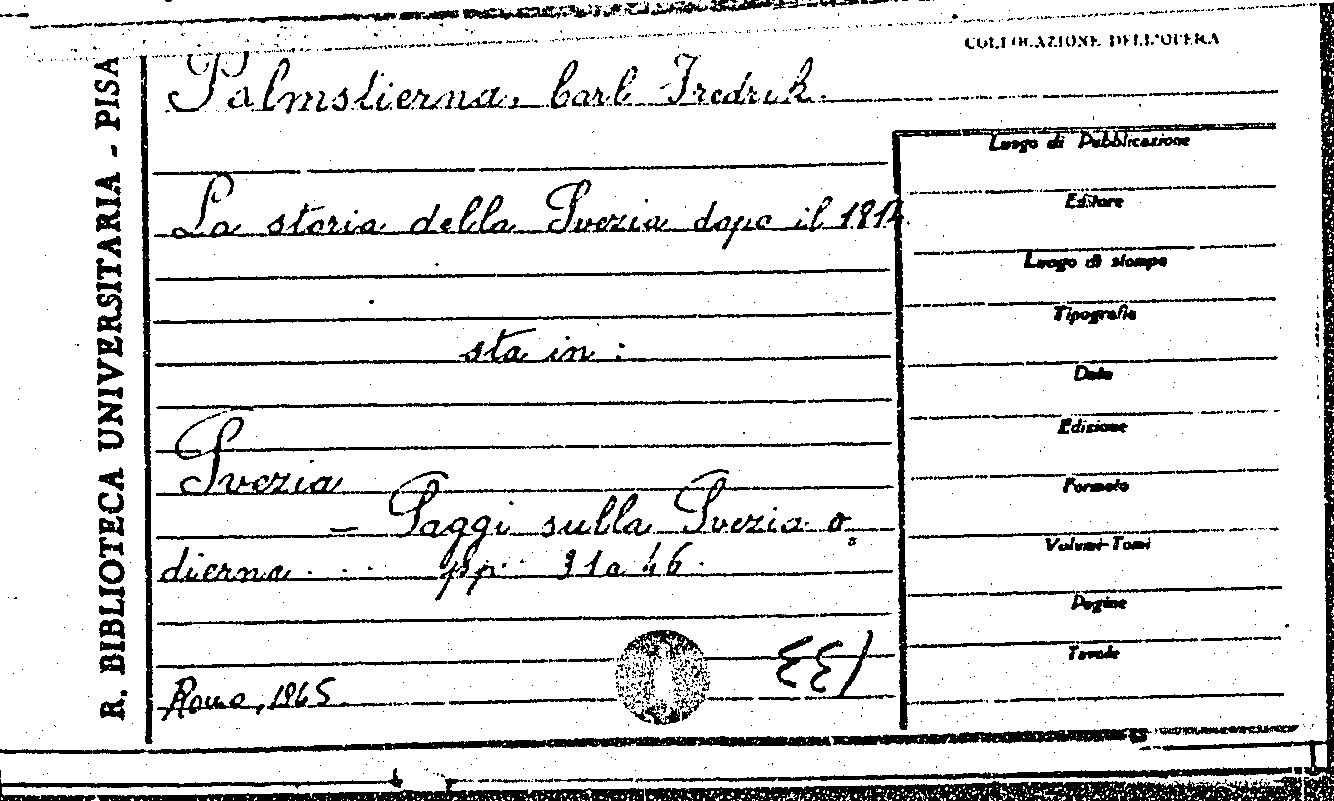 COLLOCAZIONE DELL'OPERA
R. BIBLIOTECA UNIVERSITARIA - PISA
Palmstierna, Carl Fredrik.
La storia della Svezia dopo il 1814.
sta in :
Svezia
- Saggi sulla Svezia o=
dierna . . . pp. 31 a 46.
Roma, 1965
Luogo di Pubblicazione
Editore
Luogo di stampa
Tipografia
Data
Edizione
Formato
Volumi-Tomi
Pagine
Tavole